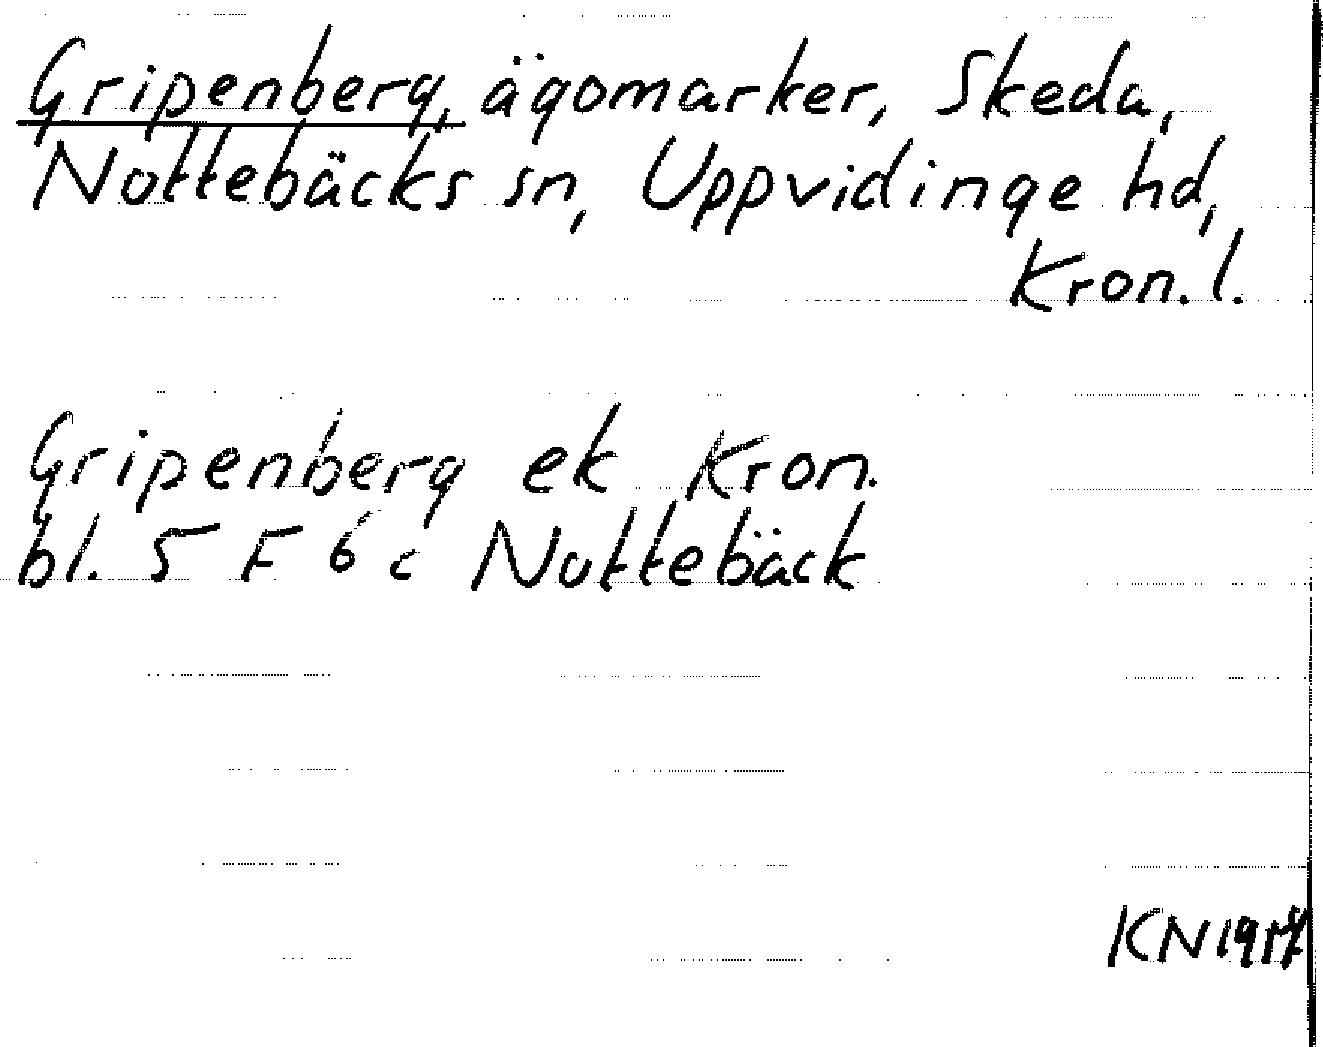 Gripenberg, ägomarker, Skeda,
Nottebäcks sn, Uppvidinge hd,
Kron. l.
Gripenberg ek Kron.
bl. 5 F 6 c Nottebäck
KN